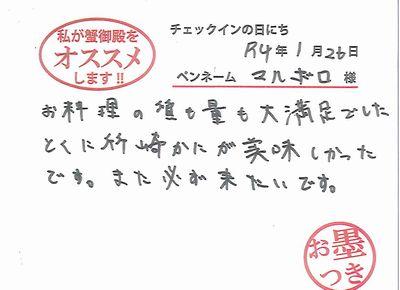 私が蟹御殿を
オススメ
します!!
チェックインの日にち
R4年 1月26日
ペンネーム マルボロ 様
お料理の種も量も大満足でした
とくに竹崎かにが美味しかった
です。また必ず来たいです。
お墨
つき